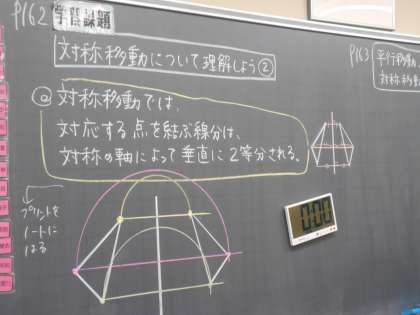 P162 学習課題
対称移動について理解しよう②
@対称移動では、
対応する点を結ぶ線分は、
対称の軸によって垂直に2等分される。
プリントを
ノートに
はる
P163
平行移動
対称移動
0:00